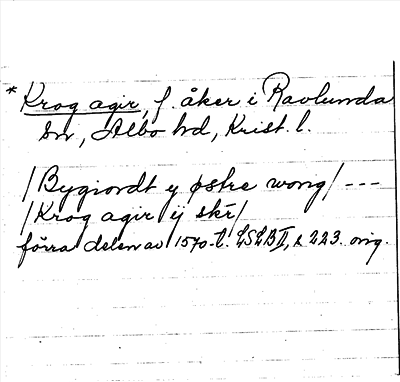 * Krog agir, f. åker i Ravlunda
sn, Albo hd, Krist. l.
/Bygiordt y østre wong/ ---
/Krog agir ij skr̄/
förra delen av 1570-t. LSLB II, s 223. orig.